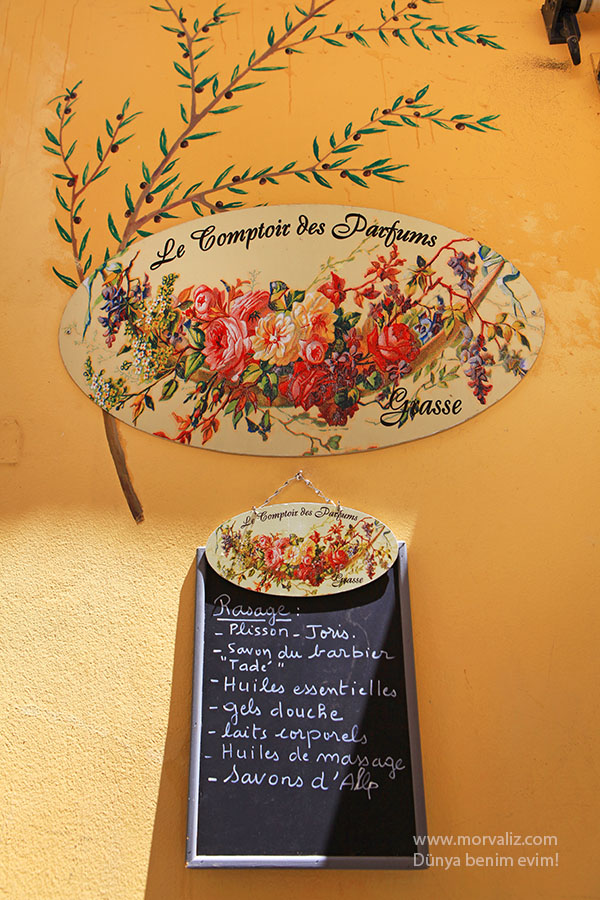 Le Comptoir des Parfums
Grasse
Le Comptoir des Parfums
Grasse
Rasage :
- Plisson - Joris.
- Savon du barbier
"Tadé"
- Huiles essentielles
- gels douche
- laits corporels
- Huiles de massage
- Savons d'Alep
www.morvaliz.com
Dünya benim evim!